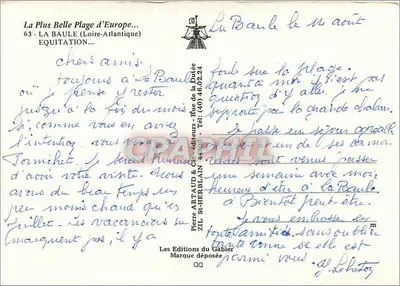 La Plus Belle Plage d'Europe...
63 - LA BAULE (Loire-Atlantique)
EQUITATION...
chers amis.
toujours à La Baule
où je pense y rester
jusqu'à la fin du mois
si, comme vous en aviez
l'intention, vous
Pornichet, je serai heureux
d'avoir votre visite. Nous
avons du beau temps un
peu moins chaud qu'en
juillet. Les vacanciers ne
manquent pas, il y a
Pierre ARTAUD & Cie éditeurs - Rue de la Dutée
ZIL St-HERBLAIN 44 Tél. (40) 46.02.24
La Baule le 11 août
foule sur la plage.
quant à moi il n'est pas
question d'y aller, je ne
supporte pas la grande chaleur.
Je passe un séjour agréable
sont venus passer
une semaine avec moi
heureux d'être à La Baule.
à Bientôt peut être.
Je vous embrasse en
toute amitié, sans oublier
tante si elle est
parmi vous.
Les Editions du Gabier
Marque déposée
CPARAMA.COM